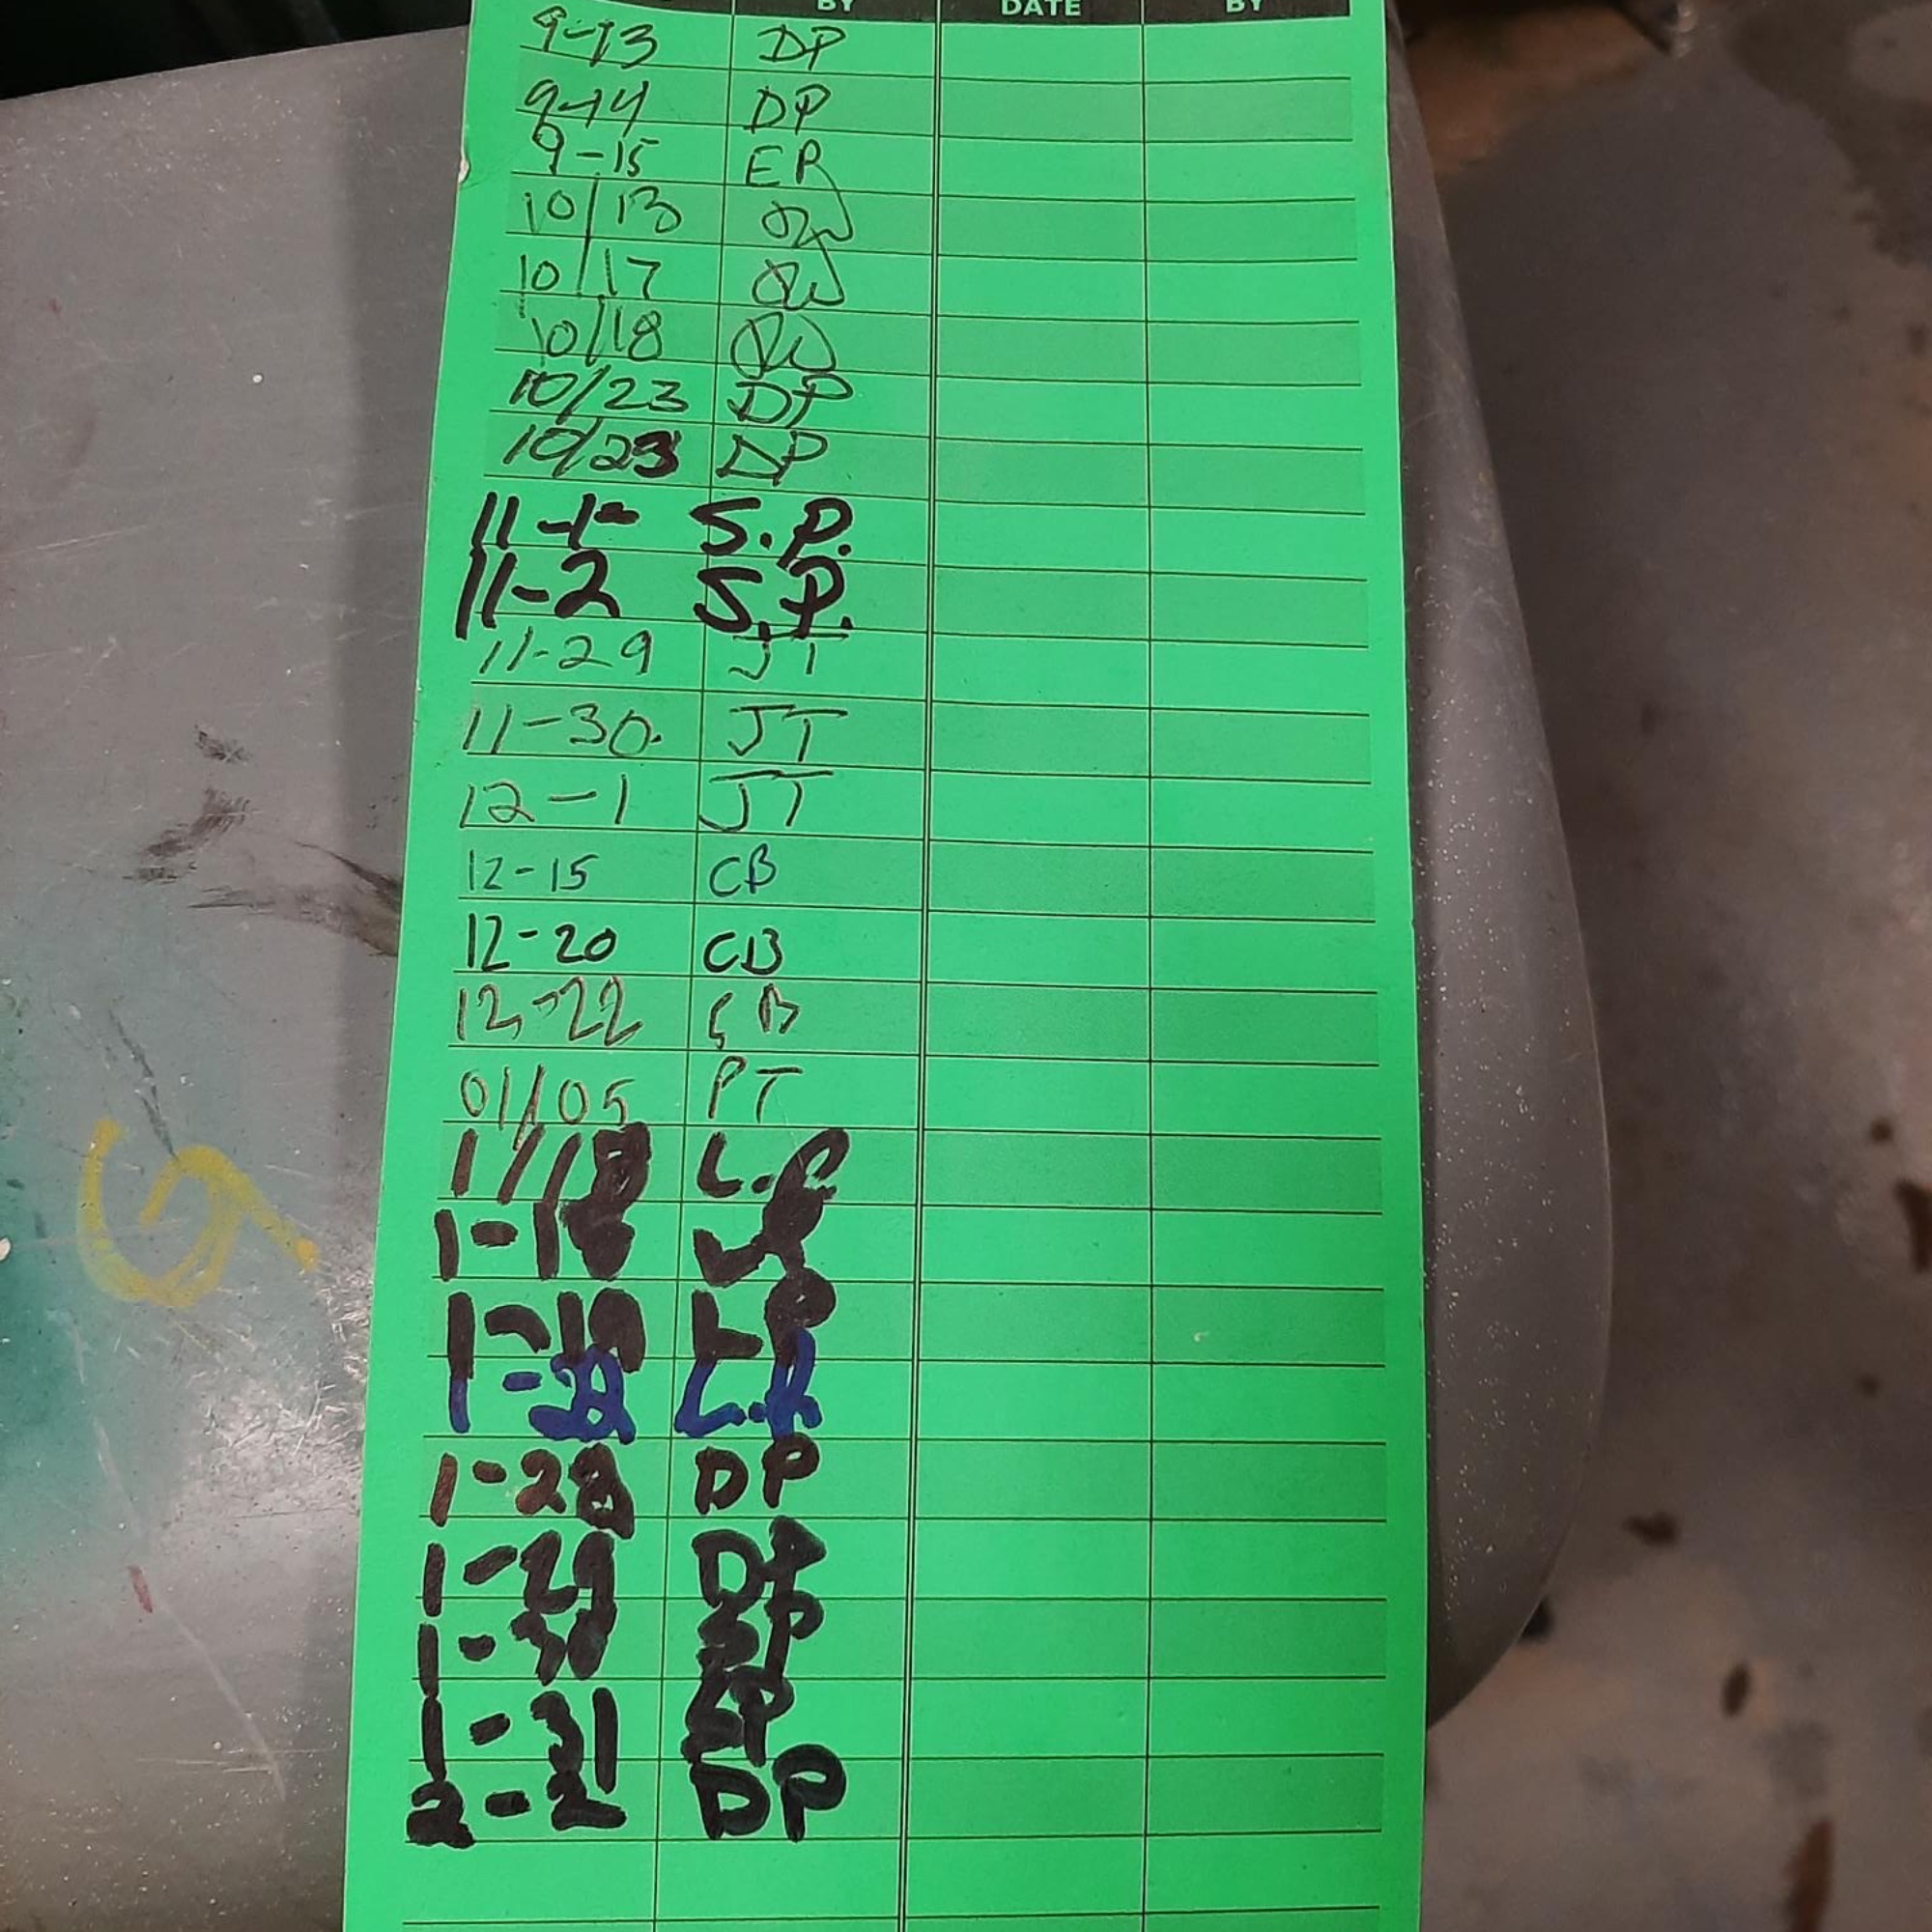 BY DATE BY
9-13 DP
9-14 DP
9-15 EP
10/13 QW
10/17 QW
10/18 QW
10/23 DP
10/23 DP
11-1- S.P.
11-2 S.P.
11-29 JT
11-30. JT
12-1 JT
12-15 CB
12-20 CB
12-22 CB
01/05 PT
1/18 L.P
1-19 LP
1-22 L.P.
1-28 DP
1-29 DP
1-30
1-31
2-2 DP
6